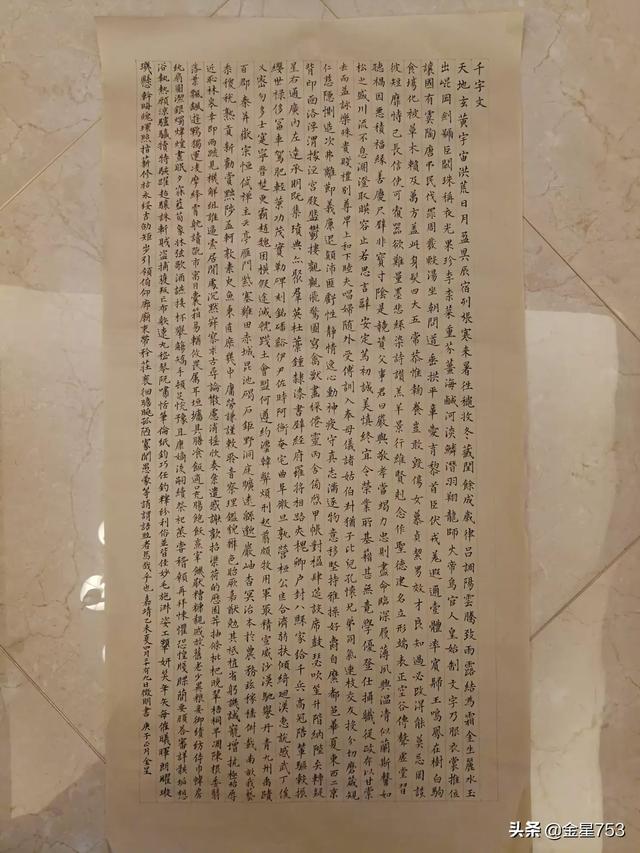 千字文
天地玄黄宇宙洪荒日月盈昃辰宿列張寒来暑往秋收冬藏閏餘成歲律吕調陽雲騰致雨露結為霜金生麗水玉
出崐岡劍號巨闕珠稱夜光果珍李柰菜重芥薑海鹹河淡鱗潛羽翔龍師火帝鳥官人皇始制文字乃服衣裳推位
讓國有虞陶唐弔民伐罪周發殷湯坐朝問道垂拱平章愛育黎首臣伏戎羌遐邇壹體率賓歸王鳴鳳在樹白駒
食場化被草木賴及萬方蓋此身髮四大五常恭惟鞠養豈敢毀傷女慕貞絜男效才良知過必改得能莫忘罔談
彼短靡恃己長信使可覆器欲難量墨悲絲染詩讚羔羊景行維賢剋念作聖德建名立形端表正空谷傳聲虛堂習
聽禍因惡積福緣善慶尺璧非寶寸陰是競資父事君曰嚴與敬孝當竭力忠則盡命臨深履薄夙興溫凊似蘭斯馨如
松之盛川流不息淵澄取暎容止若思言辭安定篤初誠美慎終宜令榮業所基籍甚無竟學優登仕攝職從政存以甘棠
去而益詠樂殊貴賤禮別尊卑上和下睦夫唱婦隨外受傅訓入奉母儀諸姑伯叔猶子比兒孔懷兄弟同氣連枝交友投分切磨箴規
仁慈隱惻造次弗離節義廉退顛沛匪虧性靜情逸心動神疲守真志滿逐物意移堅持雅操好爵自縻都邑華夏東西二京
背邙面洛浮渭據涇宮殿盤鬱樓觀飛驚圖寫禽獸畫綵僊靈丙舍傍啟甲帳對楹肆筵設席鼓瑟吹笙升階納陛弁轉疑
星右通廣內左達承明既集墳典亦聚群英杜藁鍾隸漆書壁經府羅將相路夾槐卿戶封八縣家給千兵高冠陪輦驅轂振
纓世祿侈富車駕肥輕策功茂實勒碑刻銘磻谿伊尹佐時阿衡奄宅曲阜微旦孰營桓公匡合濟弱扶傾綺迴漢惠說感武丁俊
乂密勿多士寔寧晉楚更霸趙魏困橫假途滅虢踐土會盟何遵約法韓弊煩刑起翦頗牧用軍最精宣威沙漠馳譽丹青九州禹蹟
百郡秦并嶽宗恒岱禪主云亭雁門紫塞雞田赤城昆池碣石鉅野洞庭曠遠緜邈巖岫杳冥治本於農務茲稼穡俶載南畝我藝
黍稷稅熟貢新勸賞黜陟孟軻敦素史魚秉直庶幾中庸勞謙謹敕聆音察理鑑貌辨色貽厥嘉猷勉其祗植省躬譏誡寵增抗極殆辱
近恥林皋幸即兩疏見機解組誰逼索居閒處沉默寂寥求古尋論散慮逍遙欣奏累遣慼謝歡招渠荷的歷園莽抽條枇杷晚翠梧桐早凋陳根委翳
落葉飄颻遊鵾獨運凌摩絳霄耽讀翫市寓目囊箱易輶攸畏屬耳垣牆具膳飧飯適口充腸飽飫烹宰飢厭糟糠親戚故舊老少異糧妾御績紡侍巾帷房
紈扇圓潔銀燭煒煌晝眠夕寐藍筍象牀弦歌酒讌接杯舉觴矯手頓足悅豫且康嫡後嗣續祭祀蒸嘗稽顙再拜悚懼恐惶牋牒簡要顧答審詳骸垢想
浴執熱願涼驢騾犢特駭躍超驤誅斬賊盜捕獲叛亡布射遼丸嵇琴阮嘯恬筆倫紙鈞巧任釣釋紛利俗並皆佳妙毛施淑姿工顰妍笑年矢每催曦暉朗曜璇
璣懸斡晦魄環照指薪修祜永綏吉劭矩步引領俯仰廊廟束帶矜莊徘徊瞻眺孤陋寡聞愚蒙等誚謂語助者焉哉乎也嘉靖乙未夏四月二十有九日徵明書 庚子正月金星
头条 @金星753